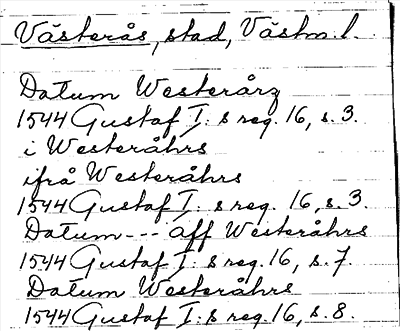 Västerås, stad, Västm. l.
Datum Westerårz
1544 Gustaf I: s reg. 16, s. 3.
i Westeråhrs
ifrå Westeråhrs
1544 Gustaf I: s reg. 16, s. 3.
Datum --- åff Westeråhrs
1544 Gustaf I: s reg. 16, s. 7.
Datum Westeråhrs
1544 Gustaf I: s reg. 16, s. 8.